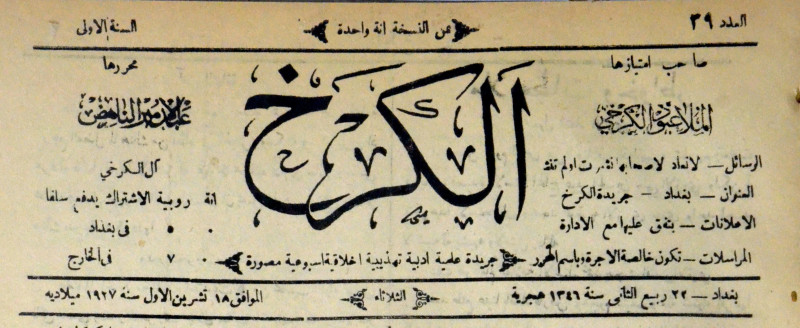 العدد ٣٩
ثمن النسخة انة واحدة
السنة الاولى
صاحب امتيازها
الملا عبود الكرخي
الكرخ
محررها
عبد الامير الناهض
الرسائل — لا تعاد لاصحابها نشرت او لم تنشر
العنوان — بغداد – جريدة الكرخ
الاعلانات — يتفق عليها مع الادارة
المراسلات — تكون خالصة الاجرة وباسم المحرر
جريدة علمية ادبية تهذيبية اخلاقية اسبوعية مصورة
آل الكرخي
انة روبية الاشتراك يدفع سلفا
٠ ٥ في بغداد
٠ ٧ في الخارج
بغداد – ٢٢ ربيع الثاني سنة ١٣٤٦ هجرية
الثلاثاء
الموافق ١٨ تشرين الاول سنة ١٩٢٧ ميلاديه